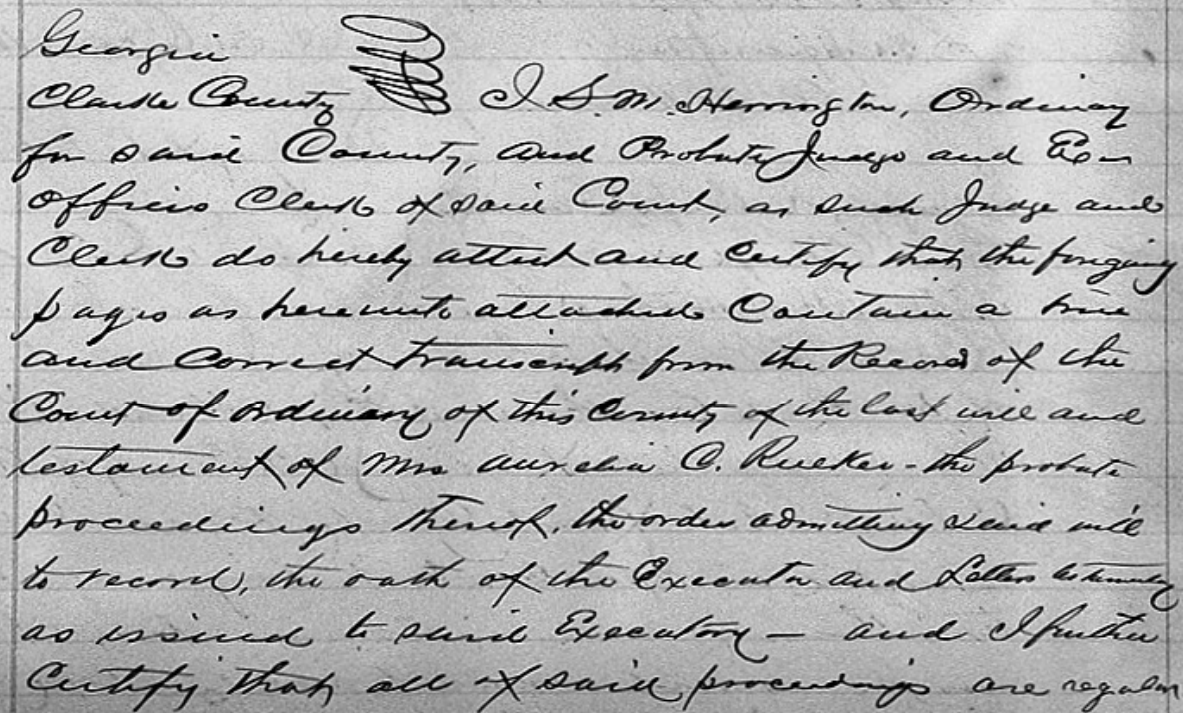 Georgia
Clarke County I S. M. Herrington, Ordinary
for said County, and Probate Judge and Ex
officio Clerk of said Court, as such Judge and
Clerk do hereby attest and certify that the foregoing
pages as hereunto attached Contain a true
and Correct transcript from the Record of the
Court of ordinary of this County of the last will and
testament of Mrs Aurelia C. Rucker - the probate
proceedings thereof, the order admitting said will
to record, the oath of the Executor and Letters testamentary
as issued to said Executory - and I further
Certify that all of said proceedings are regular